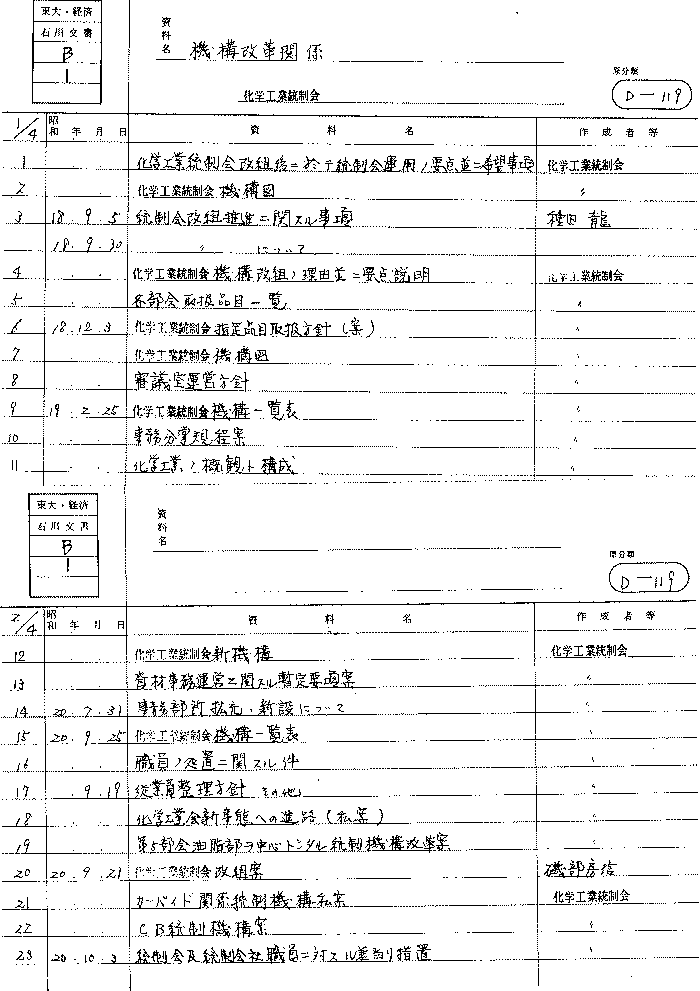 東大・経済
石川文書
B
1
資料名 機構改革関係
化学工業統制会
原分類
D-119
1/4 昭和 年 月 日 資料名 作成者等
1 化学工業統制会改組後ニ於テ統制会運用ノ要点並ニ希望事項 化学工業統制会
2 化学工業統制会機構図 〃
3 18.9.5 統制会改組推進ニ関スル事項 龍
18.9.30 〃 について
4 化学工業統制会機構改組ノ理由並ニ要点説明 化学工業統制会
5 各部会取扱品目一覧 〃
6 18.12.3 化学工業統制会指定品目取扱方針(案) 〃
7 化学工業統制会機構図 〃
8 審議室運営方針 〃
9 19.2.25 化学工業統制会機構一覧表 〃
10 事務分掌規程案 〃
11 化学工業ノ概観ト構成 〃
東大・経済
石川文書
B
1
資料名
原分類
D-119
2/4 昭和 年 月 日 資料名 作成者等
12 化学工業統制会新機構 化学工業統制会
13 資材事務運営ニ関スル暫定要項案 〃
14 20.7.31 事務部所拡充・新設について 〃
15 20.9.25 化学工業統制会機構一覧表 〃
16 職員ノ処置ニ関スル件 〃
17 9.19 従業員整理方針 その他 〃
18 化学工業会新事態への進路(私案) 〃
19 第5部会油脂部ヲ中心トシタル統制機構改革案 〃
20 20.9.21 化学工業統制会改組案 磯部房信
21 カーバイド関係統制機構私案 化学工業統制会
22 CB統制機構案 〃
23 20.10.3 統制会及統制会社職員ニ対スル差当リ措置 〃